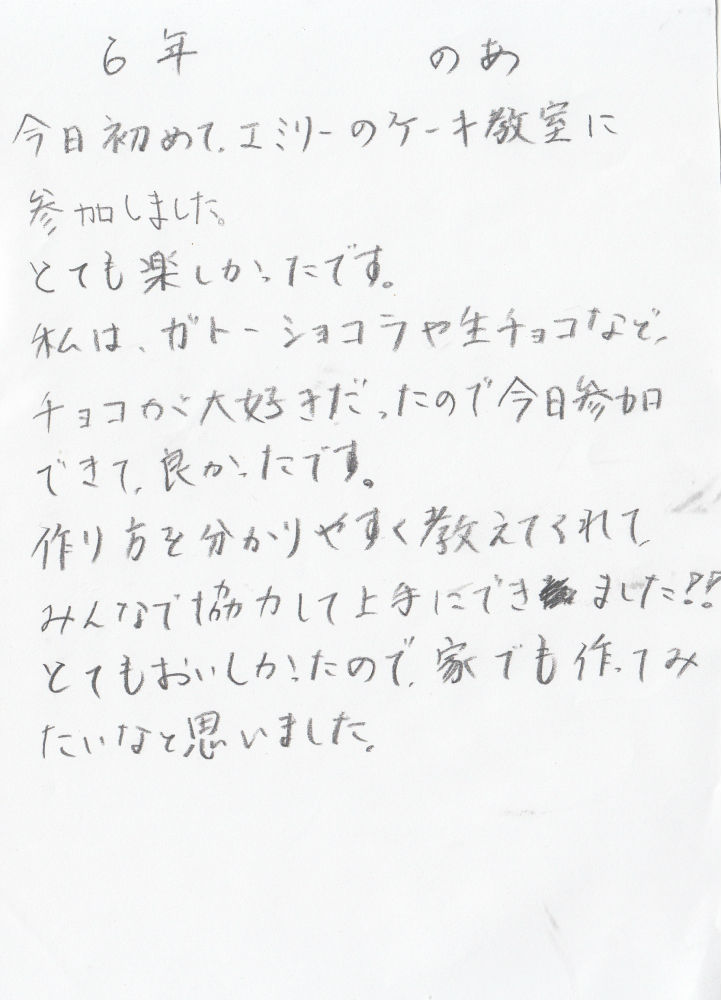 6年 のあ
今日初めて、エミリーのケーキ教室に
参加しました。
とても楽しかったです。
私は、ガトーショコラや生チョコなど、
チョコが大好きだったので今日参加
できて、良かったです。
作り方を分かりやすく教えてくれて、
みんなで協力して上手にできました!!
とてもおいしかったので、家でも作ってみ
たいなと思いました。